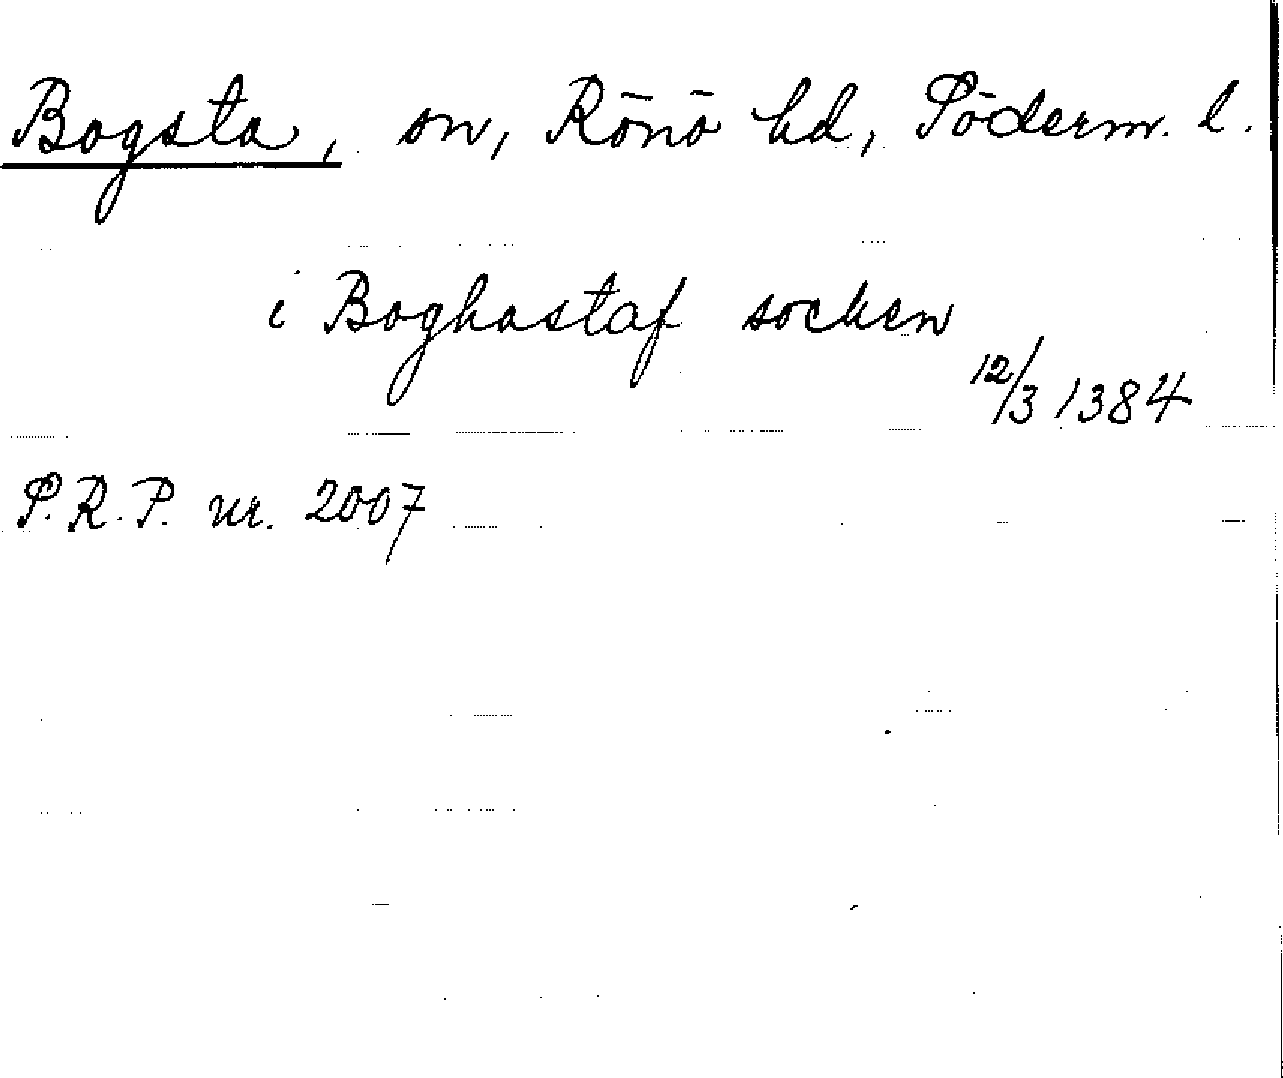 Bogsta, sn, Rönö hd, Söderm. l.
i Boghastaf socken
12/3 1384
S.R.P. nr. 2007